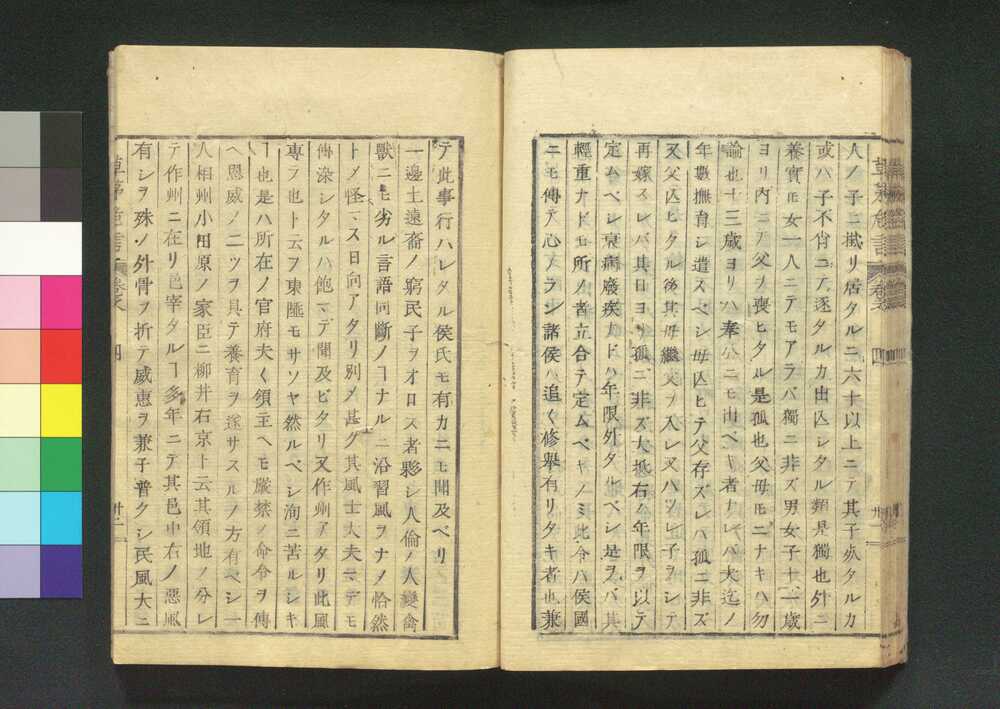 人ノ子ニ掀リ居タルニ六十以上ニテ其子死タルカ
或ハ子不肖ニテ逐タルカ出亾シタル類是獨也外ニ
養實モ女一人ニテモアラバ獨ニ非ズ男女子十二歳
ヨリ内ニテ父ヲ喪ヒタル是孤也父毋𪜈ニナキハ勿
論也十三歳ヨリハ奉公ニモ出ベキ者ナレバ夫迄ノ
年數撫育シ遣スベシ毋亾ヒテ父存ズレハ孤ニ非ズ
又父亾ヒタル後其毋繼父ヲ入レ又ハツレ子ヲシテ
再嫁スレバ其日ヨリ孤ニ非ズ大抵右ノ年限ヲ以テ
定ムベシ衰病癈疾ナドハ年限外タルベシ是ヲバ其
輕重ナド𪜈所ノ者立合テ定ムベキノミ此令ハ侯國
ニモ傳テ心アラン諸侯ハ追〱修舉有リタキ者也兼
テ此事行ハレタル侯氏モ有カニモ聞及ベリ
一邊土遠裔ノ窮民子ヲオロス者夥シ人倫ノ人變禽
獸ニモ劣ル言語同斷ノヿナルニ沿習風ヲナメ恰然
トノ怪マス日向アタリ別メ甚グ其風士大夫マデモ
傳染シタルハ飽マデ聞及ビタリ又作州アタリ此風
專ヲ也ト云ヲ東陲モサソヤ然ルベシ洵ニ苦ルシキ
ヿ也是ハ所在ノ官府夫〱領主ヘモ嚴禁ノ命令ヲ傳
ヘ恩威ノ二ツヲ具テ養育ヲ遂サスルノ方有ベシ一
人相州小田原ノ家臣ニ柳井右京ト云其領地ノ分レ
テ作州ニ在リ邑宰タルヿ多年ニテ其邑中右ノ惡風
有シヲ殊ノ外骨ヲ折テ威惠ヲ兼子普クシ民風大ニ
草茅危言 卷 四 廿二